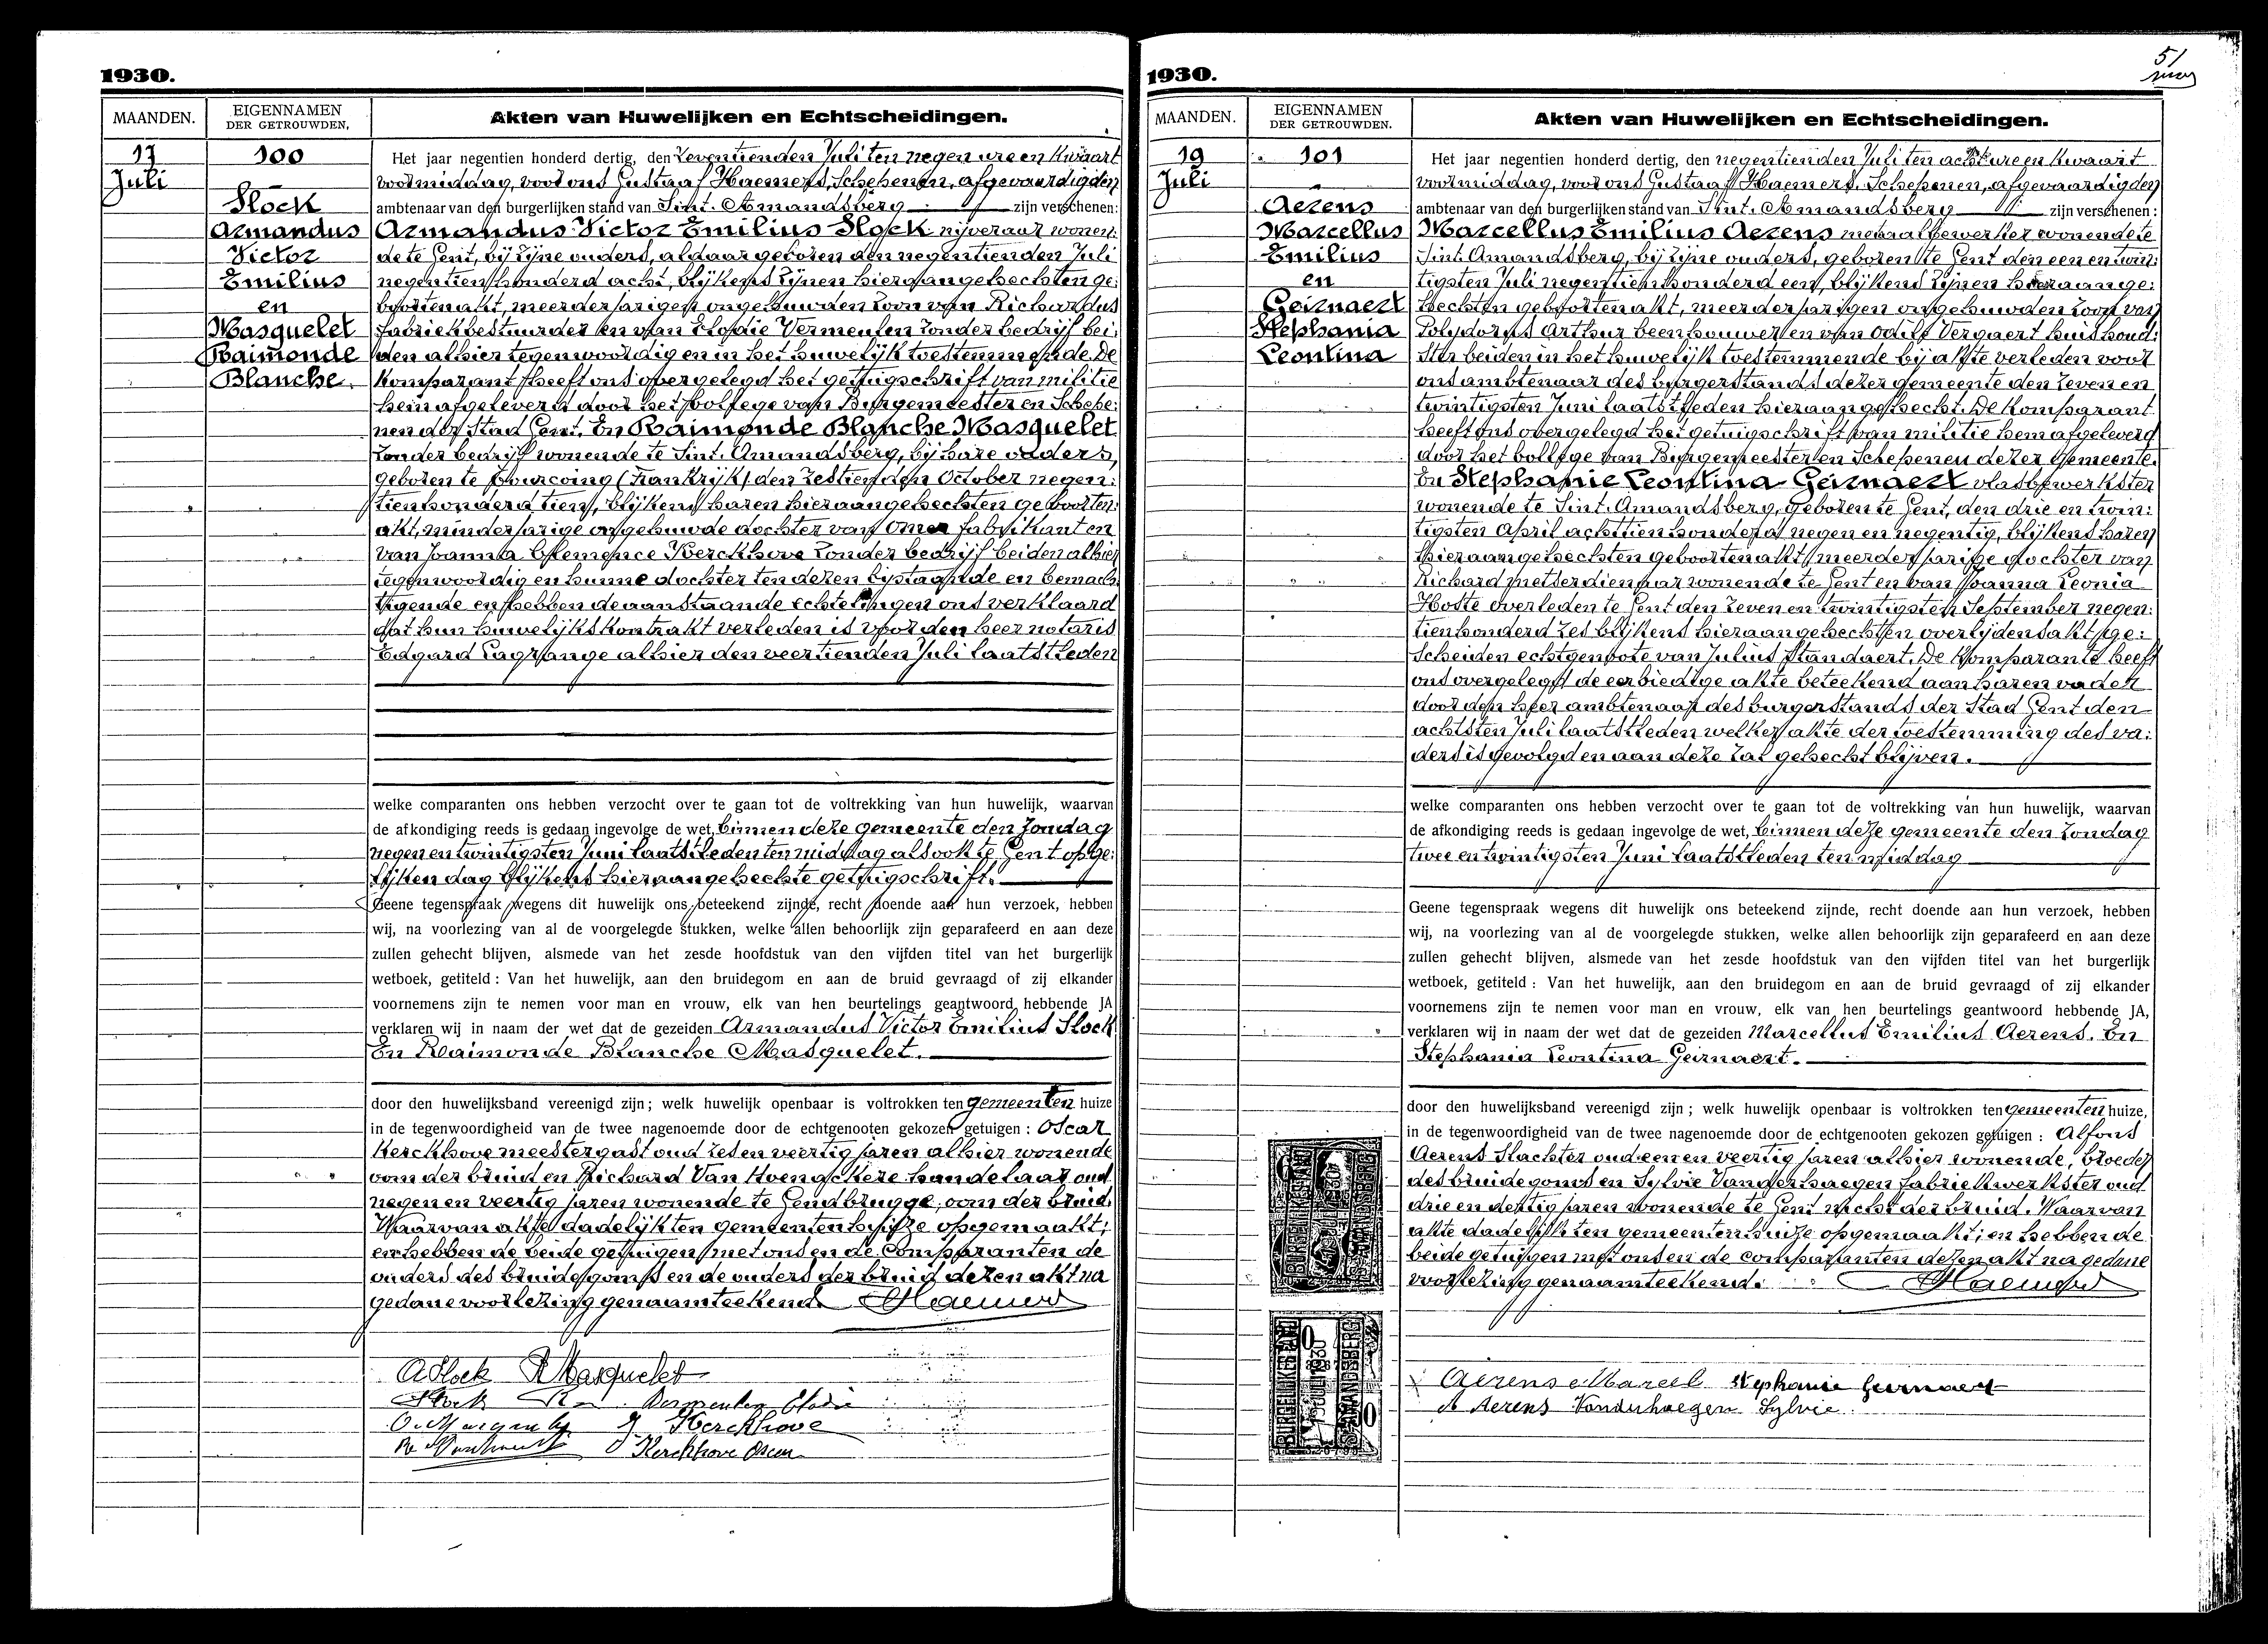 1930.
MAANDEN.
EIGENNAMEN
DER GETROUWDEN.
Akten van Huwelijken en Echtscheidingen.
17
Juli
100
Slock
Armandus
Victor
Emilius
en
Masquelet
Raimonde
Blanche.
Het jaar negentien honderd dertig, den zeventienden Juli ten negen ure en kwaart
voormiddag, voor ons Gustaaf Haemers, Schepenen, afgevaardigden
ambtenaar van den burgerlijken stand van Sint-Amandsberg zijn verschenen:
Armandus Victor Emilius Slock nijveraar wonen:
de te Gent, bij zijne ouders, aldaar geboren den negentienden Juli
negentienhonderd acht, blijkens zijnen hieraangehechten ge:
boortenakt, meerderjarigen ongehuwden zoon van Richardus
fabriekbestuurder en van Elodie Vermeulen zonder bedrijf bei:
den alhier tegenwoordig en in het huwelijk toestemmende. De
komparant heeft ons overgelegd het getuigschrift van militie
hem afgeleverd door het kollege van Burgemeester en Schepe:
nen der Stad Gent. En Raimonde Blanche Masquelet
zonder bedrijf wonende te Sint-Amandsberg, bij hare ouders,
geboren te Tourcoing (Frankrijk) den zestienden October negen:
tienhonderd tien, blijkens haren hieraangehechten geboorten:
akt, minderjarige ongehuwde dochter van Omer fabrikant en
van Joanna Clemence Kerckhove zonder bedrijf beiden alhier
tegenwoordig en hunne dochter ten dezen bijstaande en bemach
tigende en hebben de aanstaande echtelingen ons verklaard
dat hun huwelijkskontrakt verleden is voor den heer notaris
Edgard Lagrange alhier den veertienden Juli laatstleden
welke comparanten ons hebben verzocht over te gaan tot de voltrekking van hun huwelijk, waarvan
de afkondiging reeds is gedaan ingevolge de wet, binnen deze gemeente den Zondag
negen en twintigsten Juni laatstleden ten middag alsook te Gent op ge:
lijken dag blijkens hieraangehechte getuigschrift.
Geene tegenspraak wegens dit huwelijk ons beteekend zijnde, recht doende aan hun verzoek, hebben
wij, na voorlezing van al de voorgelegde stukken, welke allen behoorlijk zijn geparafeerd en aan deze
zullen gehecht blijven, alsmede van het zesde hoofdstuk van den vijfden titel van het burgerlijk
wetboek, getiteld : Van het huwelijk, aan den bruidegom en aan de bruid gevraagd of zij elkander
voornemens zijn te nemen voor man en vrouw, elk van hen beurtelings geantwoord hebbende JA
verklaren wij in naam der wet dat de gezeiden Armandus Victor Emilius Slock
En Raimonde Blanche Masquelet.
door den huwelijksband vereenigd zijn; welk huwelijk openbaar is voltrokken ten gemeenten huize
in de tegenwoordigheid van de twee nagenoemde door de echtgenooten gekozen getuigen : Oscar
Kerckhove meestergast oud zes en veertig jaren alhier wonende
oom der bruid en Richard Van handelaar oud
negen en veertig jaren wonende te Gendbrugge, oom der bruid.
Waarvan akte dadelijk ten gemeentenhuize opgemaakt;
en hebben de beide getuigen met ons en de Comparanten de
ouders des bruidegoms en de ouders der bruid dezen akt na
gedane voorlezing genaamteekend. Haemers
ASlock RMasquelet
Slock Vermeulen Elodie
J Kerckhove
Kerckhove Oscar
1930.
51
MAANDEN.
EIGENNAMEN
DER GETROUWDEN.
Akten van Huwelijken en Echtscheidingen.
19
Juli
101
Aerens
Marcellus
Emilius
en
Geirnaert
Stephania
Leontina
Het jaar negentien honderd dertig, den negentienden Juli ten acht ure en kwaart
voormiddag, voor ons Gustaaf Haemers, Schepenen, afgevaardigden
ambtenaar van den burgerlijken stand van Sint-Amandsberg zijn verschenen :
Marcellus Emilius Aerens metaalbewerker wonende te
Sint-Amandsberg, bij zijne ouders, geboren te Gent den een en twin:
tigsten Juli negentienhonderd een, blijkens zijnen hieraange:
hechten geboortenakt, meerderjarigen ongehuwden zoon van
Polydorus Arthur beenhouwer en van Odile Vergaert huishoud:
ster beiden in het huwelijk toestemmende bij akte verleden voor
ons ambtenaar des burgerstands dezer gemeente den zeven en
twintigsten Juni laatstleden hieraangehecht. De komparant
heeft ons overgelegd het getuigschrift van militie hem afgeleverd
door het kollege van Burgemeester en Schepenen dezer Gemeente.
En Stephanie Leontina Geirnaert vlasbewerkster
wonende te Sint-Amandsberg, geboren te Gent, den drie en twin:
tigsten April achttienhonderd negen en negentig, blijkens haren
hieraangehechten geboortenakt, meerderjarige dochter van
Richard metserdienaar wonende te Gent en van Joanna Leonia
Hoste overleden te Gent den zeven en twintigsten September negen:
tienhonderd zes blijkens hieraangehechten overlijdensakt, ge:
scheiden echtgenoote van Julius Standaert. De Komparante heeft
ons overgelegd de eerbiedige akte beteekend aan haren vader
door den heer ambtenaar des burgerstands der Stad Gent den
achtsten Juli laatstleden welker akte der toestemming des va:
ders is gevolgd en aan deze zal gehecht blijven.
welke comparanten ons hebben verzocht over te gaan tot de voltrekking van hun huwelijk, waarvan
de afkondiging reeds is gedaan ingevolge de wet, binnen deze gemeente den Zondag
twee en twintigsten Juni laatstleden ten middag
Geene tegenspraak wegens dit huwelijk ons beteekend zijnde, recht doende aan hun verzoek, hebben
wij, na voorlezing van al de voorgelegde stukken, welke allen behoorlijk zijn geparafeerd en aan deze
zullen gehecht blijven, alsmede van het zesde hoofdstuk van den vijfden titel van het burgerlijk
wetboek, getiteld : Van het huwelijk, aan den bruidegom en aan de bruid gevraagd of zij elkander
voornemens zijn te nemen voor man en vrouw, elk van hen beurtelings geantwoord hebbende JA,
verklaren wij in naam der wet dat de gezeiden Marcellus Emilius Aerens. En
Stephania Leontina Geirnaert.
door den huwelijksband vereenigd zijn ; welk huwelijk openbaar is voltrokken ten gemeenten huize,
in de tegenwoordigheid van de twee nagenoemde door de echtgenooten gekozen getuigen : Alfons
Aerens Slachter oud een en veertig jaren alhier wonende, broeder
des bruidegoms en Sylvie Vanderhaegen fabriekwerkster oud
drie en dertig jaren wonende te Gent nicht der bruid. Waarvan
akte dadelijk ten gemeentenhuize opgemaakt; en hebben de
beide getuigen met ons en de comparanten dezen akt na gedane
voorlezing genaamteekend. Haemers
Aerens Marcel Stephanie Geirnaert
A Aerens Vanderhaegen Sylvie